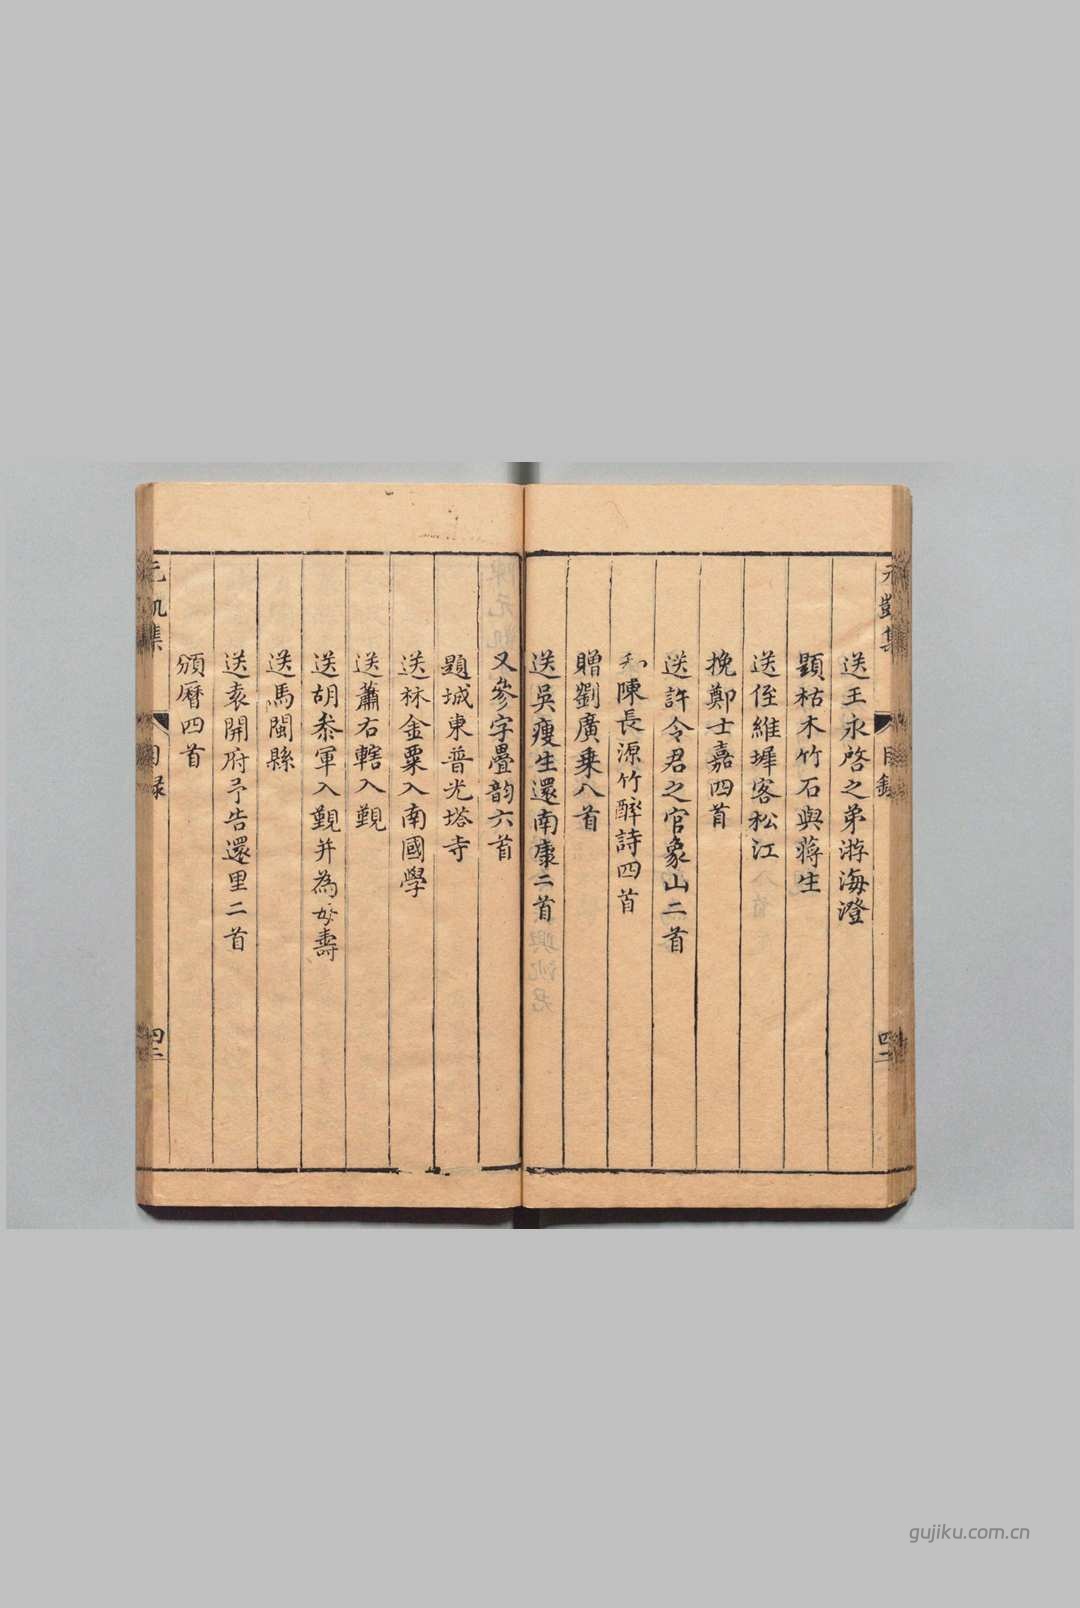 元凱集
目錄
四二
送王永啓之弟游海澄
題枯木竹石與蔣生
送侄維墀客松江
挽鄭士嘉四首
送許令君之官象山二首
和陳長源竹醉詩四首
贈劉廣乗八首
送吳瘦生還南康二首
又參字疊韵六首
題城東普光塔寺
送林金粟入南國學
送蕭右轄入覲
送胡叅軍入覲并為母壽
送馬閩縣
送袁開府予告還里二首
頒曆四首
元凱集
目録
四二
gujiku.com.cn